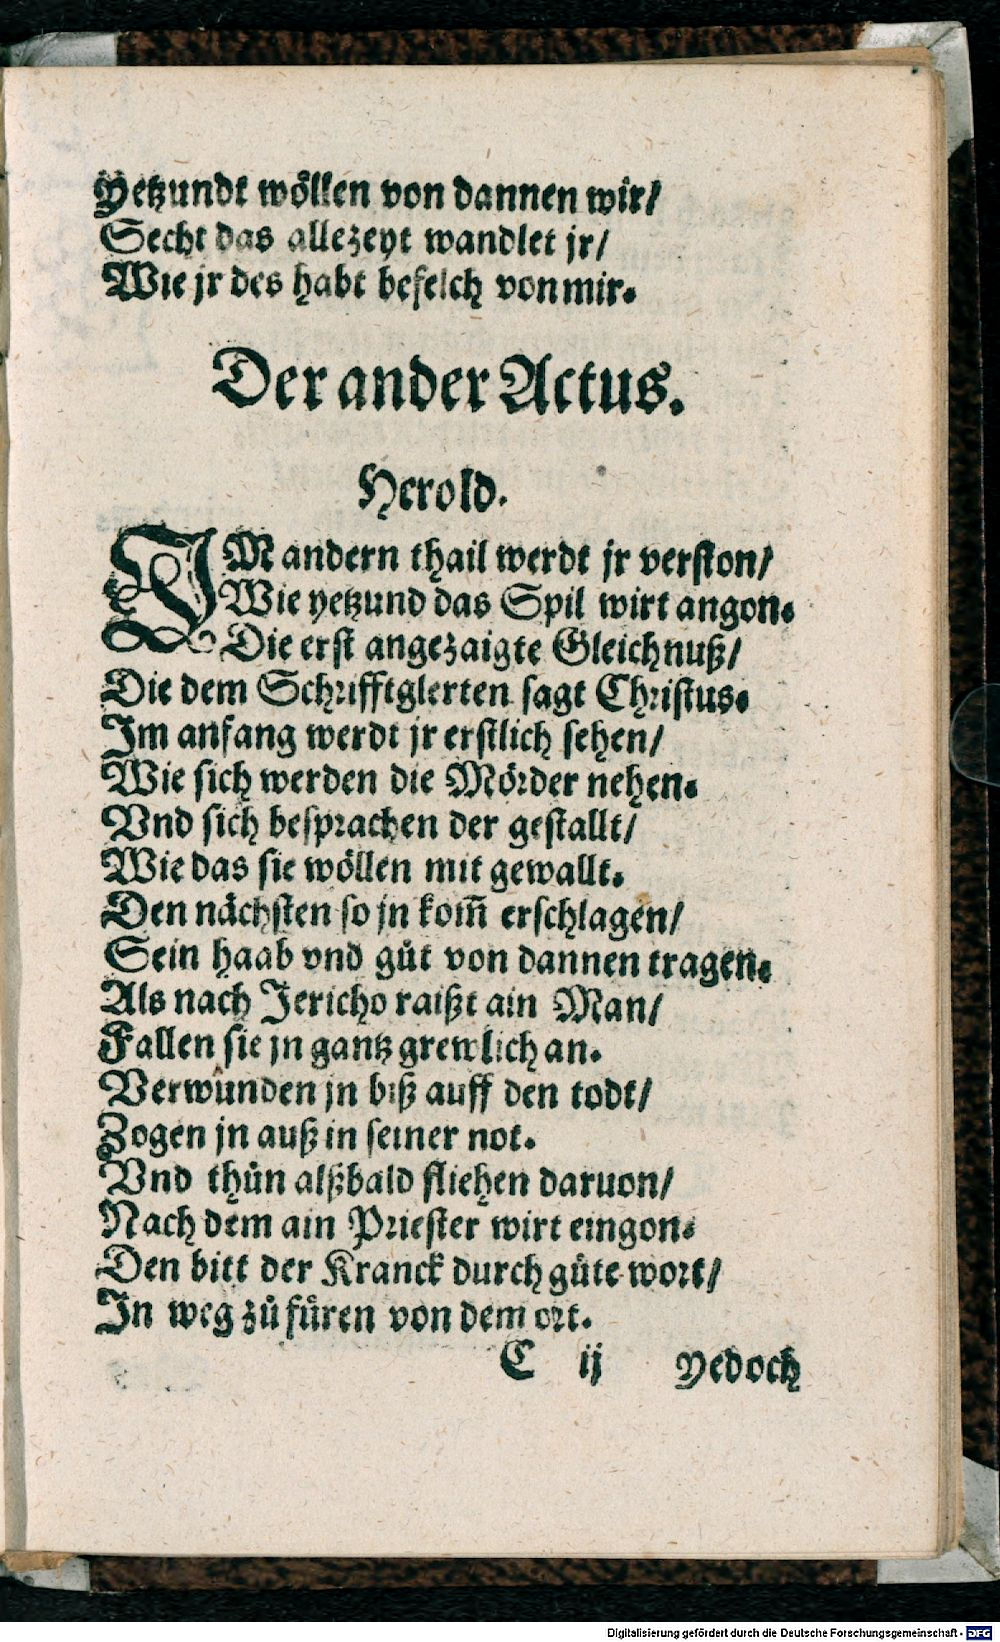 Yetzundt wöllen von dannen wir/
Secht das allezeyt wandlet jr/
Wie jr des habt befelch von mir.
Der ander Actus.
Herold.
IM andern thail werdt jr verston/
Wie yetzund das Spil wirt angon.
Die erst angezaigte Gleichnuß/
Die dem Schrifftglerten sagt Christus.
Im anfang werdt jr erstlich sehen/
Wie sich werden die Mörder nehen.
Vnd sich besprachen der gestallt/
Wie das sie wöllen mit gewallt.
Den nächsten so jn kom̃ erschlagen/
Sein haab vnd gůt von dannen tragen.
Als nach Jericho raißt ain Man/
Fallen sie jn gantz grewlich an.
Verwunden jn biß auff den todt/
Zogen jn auß in seiner not.
Vnd thůn alßbald fliehen daruon/
Nach dem ain Priester wirt eingon.
Den bitt der Kranck durch gůte wort/
In weg zů füren von dem ort.
C ij yedoch
Digitalisierung gefördert durch die Deutsche Forschungsgemeinschaft - DFG